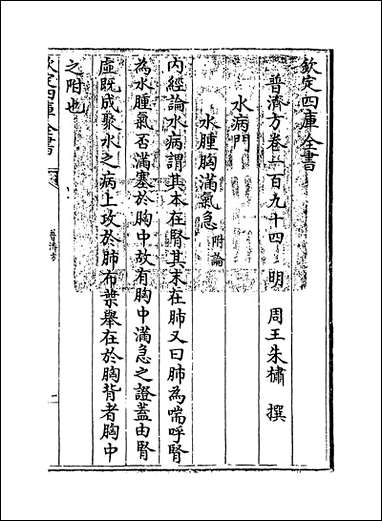 欽定四庫全書
普濟方卷一百九十四 明 周王朱橚 撰
水病門
水腫胸滿氣急 附論
内經論水病謂其本在腎其末在肺又曰肺為喘呼腎
為水腫氣否滿塞於胸中故有胸中滿急之證蓋由腎
虛既成聚水之病上攻於肺布葉舉在於胸背者胸中
之附也
欽定四庫全書
普濟方
一